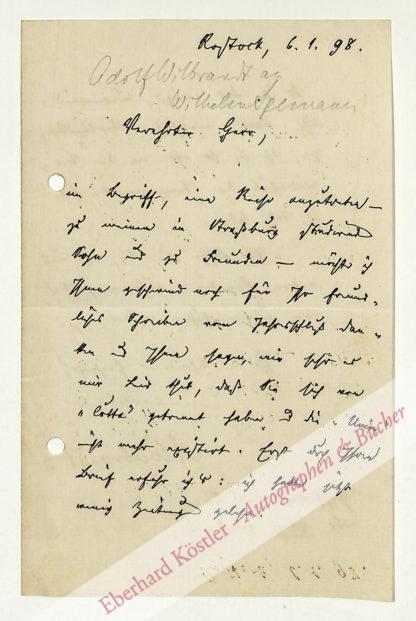 Rostock, 6.1.98.
Adolf Wilbrandt an
Wilhelm Spemann
Verehrter Herr,
im Begriff, eine Reise anzutreten –
zu meinem in Straßburg studierend
Sohn und zu Freunden – möchte ich
Ihnen geschwind noch für Ihr freund-
liches Schreiben vom Jahresschluß dan-
ken u Ihnen sagen, wie sehr es
mir Leid thut, daß Sie sich von
"Cotta" getrennt haben u die "Union"
nicht mehr existirt. Erst durch Ihren
Brief erfuhr ich's: ich hatte jetzt
wenig Zeitung gelesen.
Eberhard Köstler Autographen & Bücher